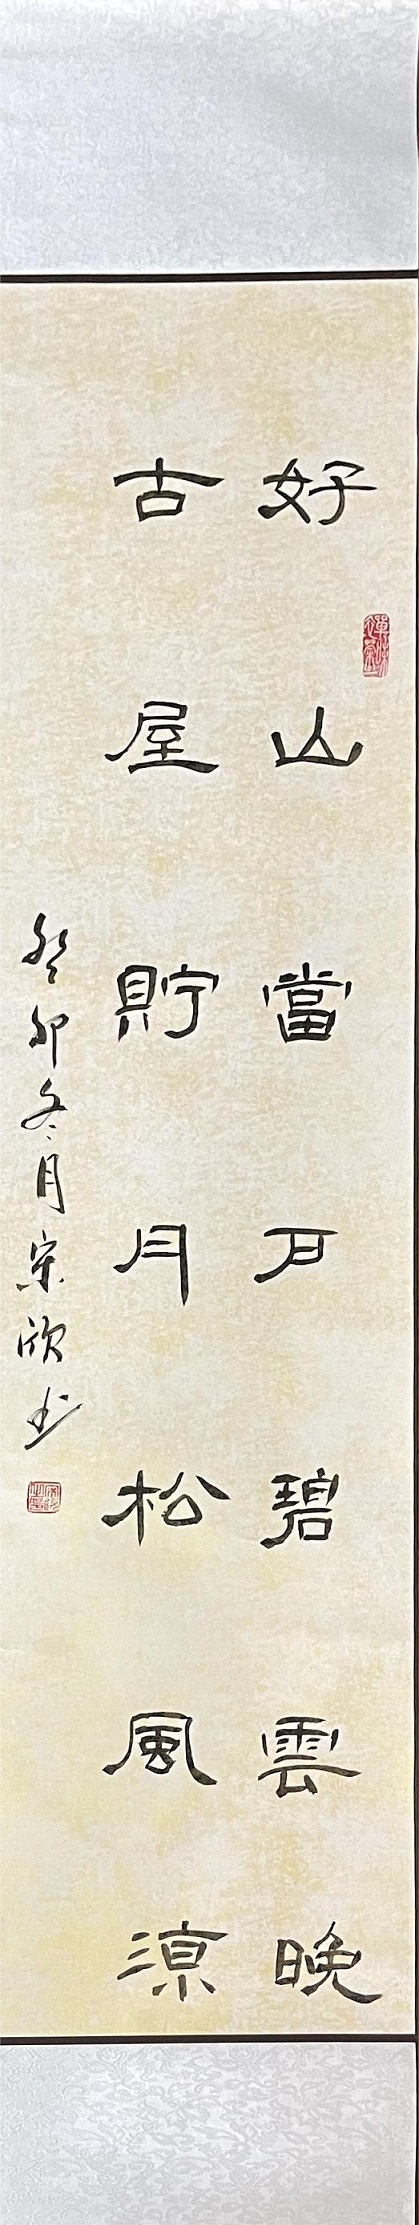 好山當戶碧雲晚
古屋貯月松風涼
癸卯冬月宋欣书